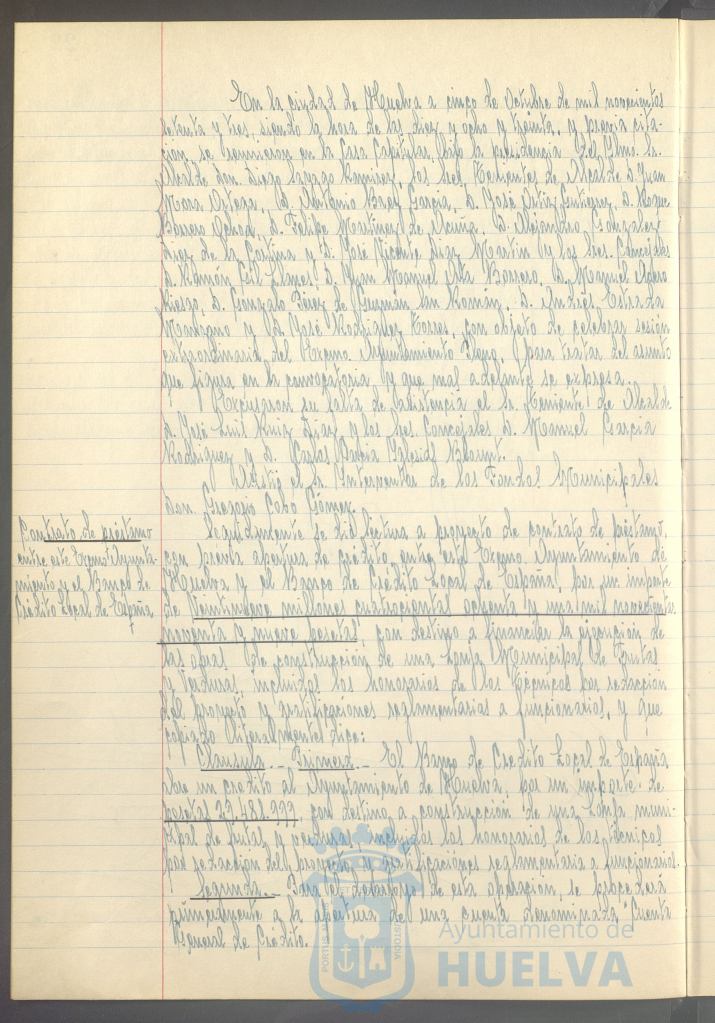 En la ciudad de Huelva a cinco de Octubre de mil novecientos
setenta y tres, siendo la hora de las diez y ocho y treinta, y previa cita-
ción, se reunieron en la Casa Capitular, bajo la presidencia del Ilmo. Sr.
Alcalde don Diego Sayago Ramírez, los Sres. Tenientes de Alcalde D. Juan
Mora Ortega, D. Antonio Baez Garcia, D. José Ortiz Gutierrez, D. Roque
Barrero Ochoa, D. Felipe Martinez de Acuña, D. Alejandro Gonzalez
Diaz de la Cortina y D. José Vicente Diaz Martin y los Sres. Concejales
D. Ramón Gil Llanes, D. Juan Manuel Orta Borrero, D. Manuel
Riesgo, D. Gonzalo Perez de Guzmán San Román, D. Andrés Estrada
Manzano y D. José Rodriguez Torres, con objeto de celebrar sesión
extraordinaria del Excmo. Ayuntamiento Pleno, para tratar del asunto
que figura en la convocatoria y que mas adelante se expresa.
Excusaron su falta de asistencia el Sr. Teniente de Alcalde
D. José Luis Ruiz Diaz y los Sres. Concejales D. Manuel Garcia
Rodriguez y D. Carlos Garcia Iglesias Blount.
Asistió el Sr. Interventor de los Fondos Municipales
don Gregorio Cobo Gómez.
Contrato de préstamo
entre este Excmo. Ayunta-
miento y el Banco de
Crédito Local de España
Seguidamente se dió lectura a proyecto de contrato de préstamo,
con previa apertura de crédito, entre este Excmo. Ayuntamiento de
Huelva y el Banco de Crédito Local de España, por un importe
de Veintinueve millones cuatrocientas ochenta y una mil novecientas
noventa y nueve pesetas, con destino a financiar la ejecución de
las obras de construcción de una Lonja Municipal de Frutas
y Verduras, incluidos los honorarios de los técnicos por redacción
del proyecto y gratificaciones reglamentarias a funcionarios, y que
copiado literalmente dice:
Clausula.- Primera.- El Banco de Crédito Local de España
abre un crédito al Ayuntamiento de Huelva, por un importe de
pesetas 29.481.999, con destino a construcción de una Lonja muni-
cipal de frutas y verduras, incluidos los honorarios de los técnicos
por redacción del proyecto y gratificaciones reglamentaria a funcionarios.
Segunda.- Para el desarrollo de esta operación, se procederá
primeramente a la apertura de una cuenta denominada "Cuenta
General de Crédito.
PORTUS MARIS
CUSTODIA
Ayuntamiento de
HUELVA